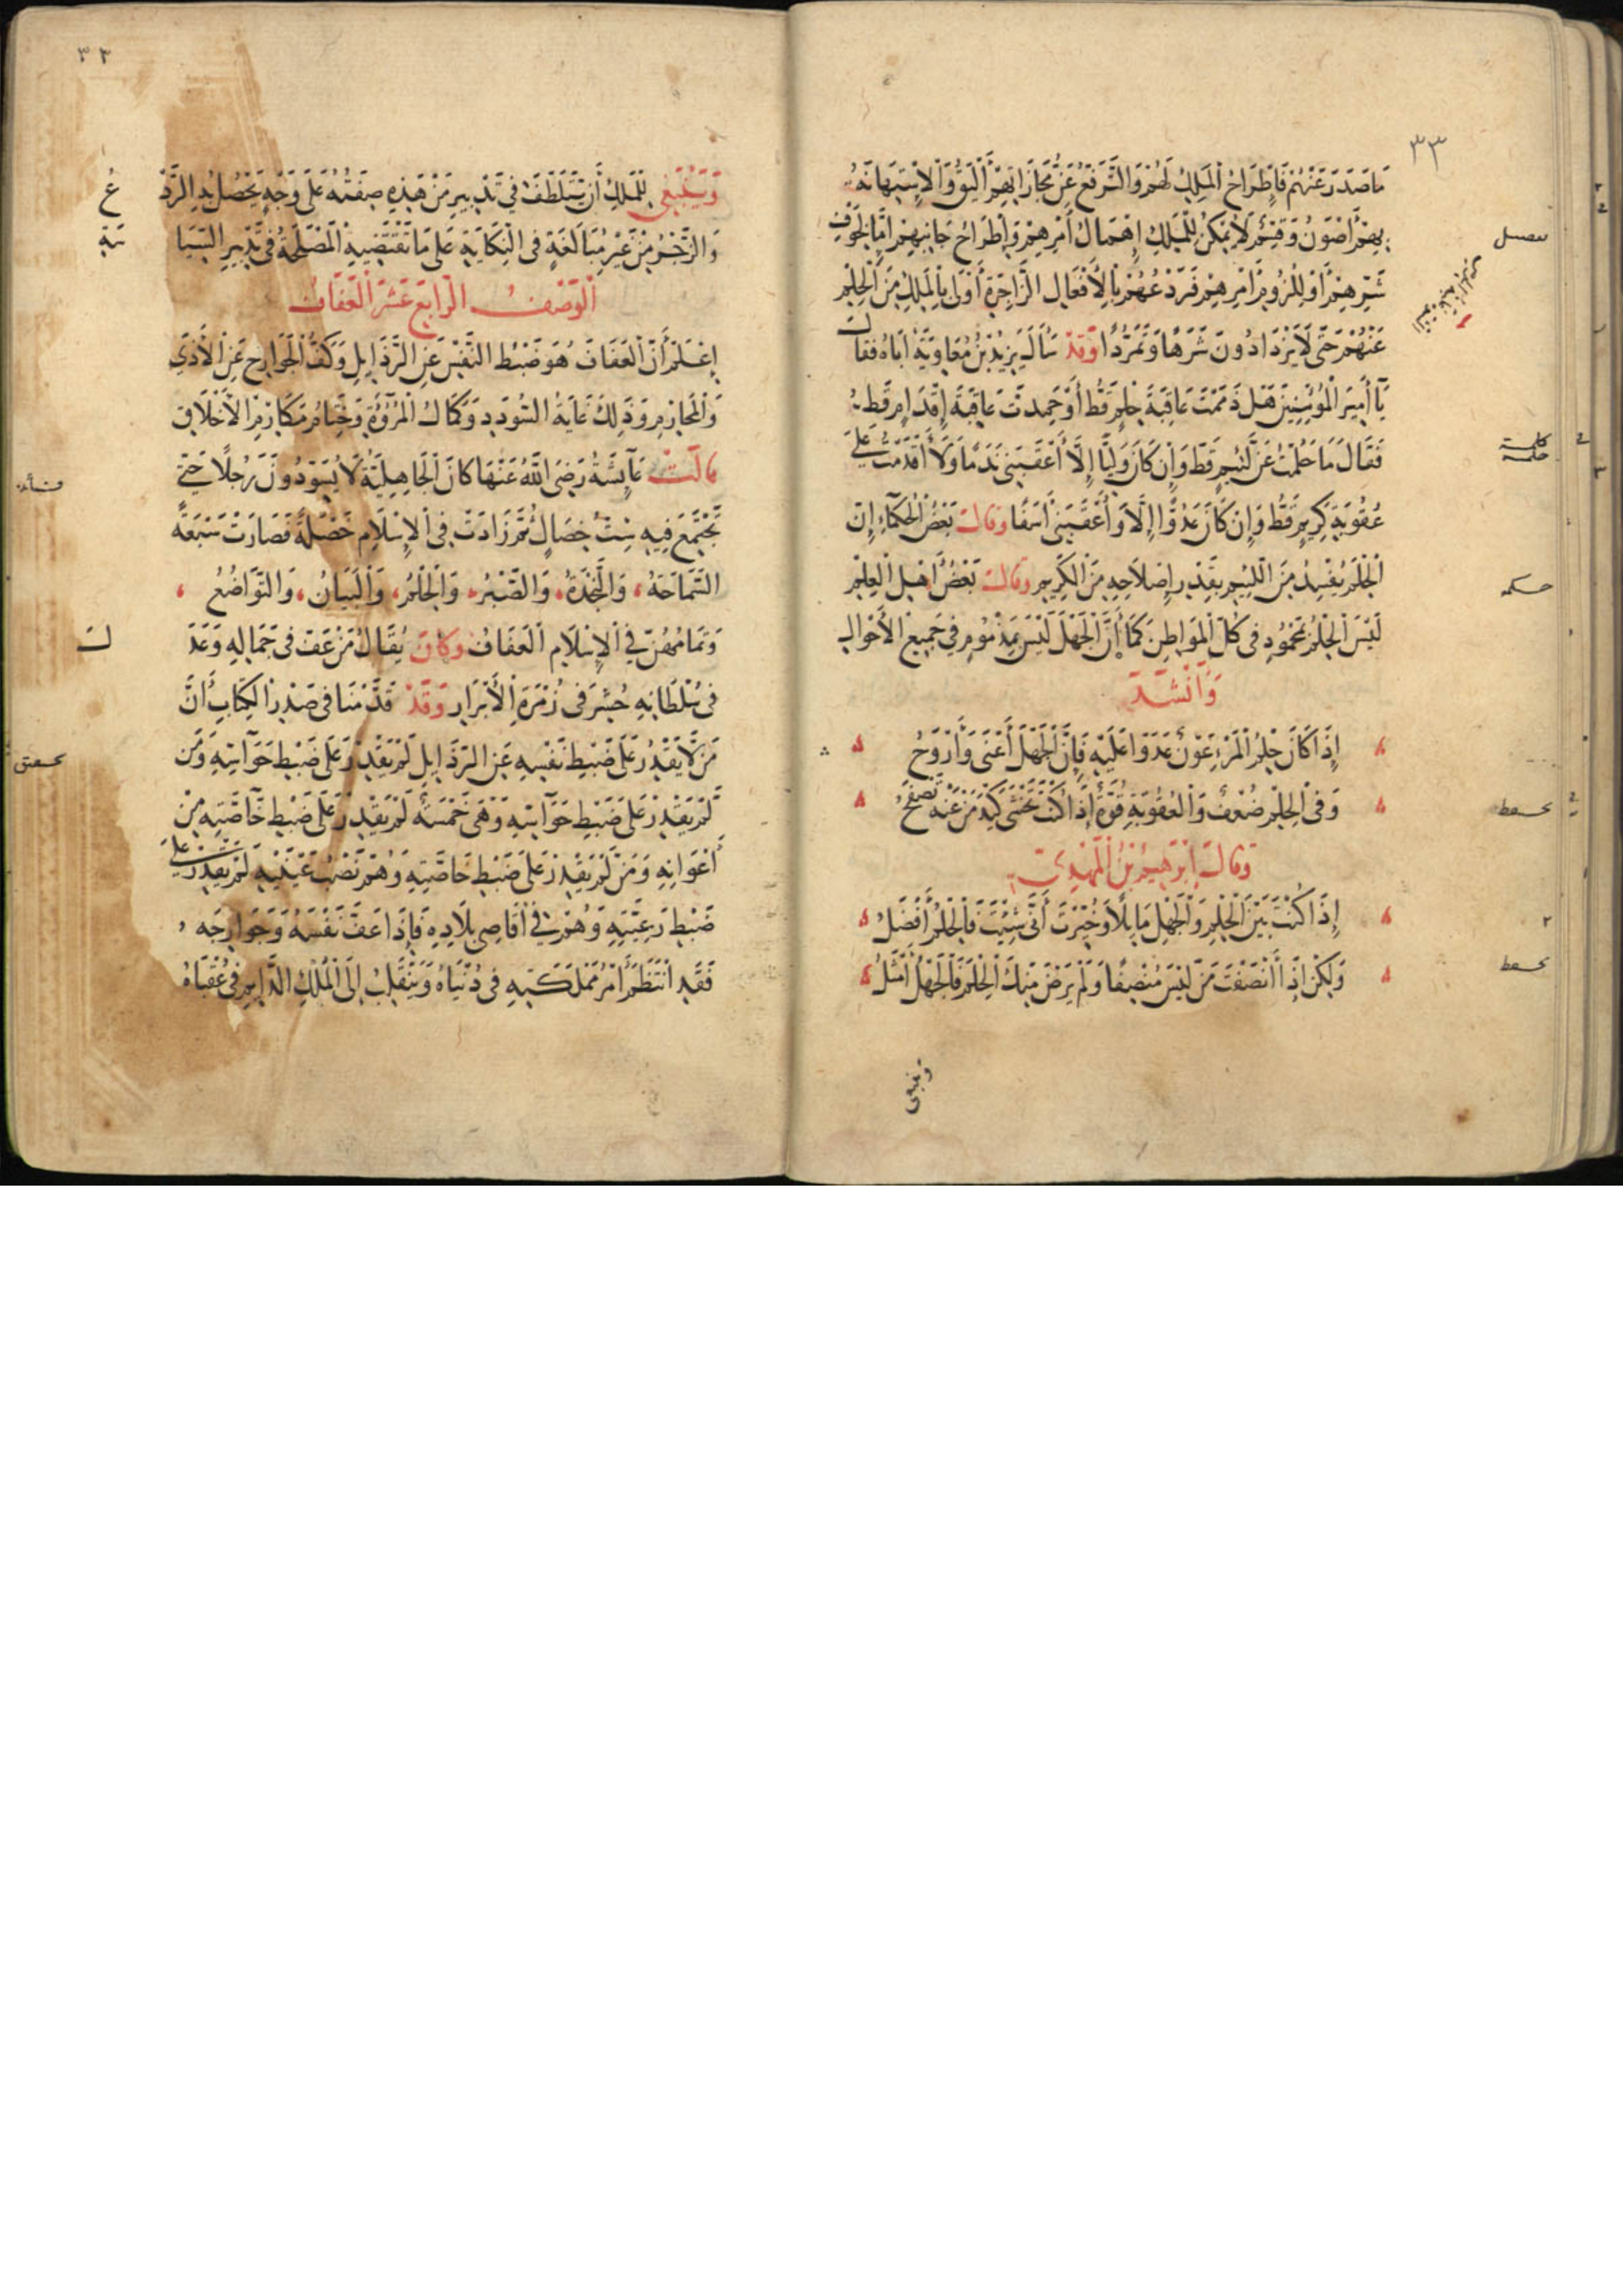 ٣٣
مَا صَدَرَ عَنْهُمْ فَاطِّرَاحُ الْمَلِكِ لَهُمْ وَالتَّرَفُّعُ عَنْ مُجَازَاتِهِمْ أَلْيَقُ وَالْاِسْتِهَانَةُ
بِهِمْ أَصْوَنُ وَقِسْمٌ لَا يُمْكِنُ لِلْمَلِكِ إِهْمَالُ أَمْرِهِمْ وَاطِّرَاحُ جَانِبِهِمْ إِمَّا لِخَوْفِ
شَرِّهِمْ أَوْ لِلُزُومِ أَمْرِهِمْ فَرَدْعُهُمْ بِالْأَفْعَالِ الزَّاجِرَةِ أَوْلَى بِالْمَلِكِ مِنَ الْحِلْمِ
عَنْهُمْ حَتَّى لَا يَزْدَادُونَ شَرَهًا وَتَمَرُّدًا وَقَدْ سَأَلَ يَزِيدُ بْنُ مُعَاوِيَةَ أَبَاهُ فَقَالَ
يَا أَمِيرَ الْمُؤْمِنِينَ هَلْ ذَمَمْتَ عَاقِبَةَ حِلْمٍ قَطُّ أَوْ حَمِدتَّ عَاقِبَةَ إِقْدَامٍ قَطُّ
فَقَالَ مَا حَلُمْتُ عَنْ لَئِيمٍ قَطُّ وَإِنْ كَانَ وَلِيًّا إِلَّا أَعْقَبَنِي نَدَمًا وَلَا أَقْدَمْتُ عَلَى
عُقُوبَةِ كَرِيمٍ قَطُّ وَإِنْ كَانَ عَدُوًّا إِلَّا وَأَعْقَبَنِي أَسَفًا وَقَالَ بَعْضُ الْحُكَمَاءِ إِنَّ
الْحِلْمَ يُفْسِدُ مِنَ اللَّئِيمِ بِقَدْرِ إِصْلَاحِهِ مِنَ الْكَرِيمِ وَقَالَ بَعْضُ أَهْلِ الْعِلْمِ
لَيْسَ الْحِلْمُ بِمَحْمُودٍ فِي كُلِّ الْمَوَاطِنِ كَمَا أَنَّ الْجَهْلَ لَيْسَ بِمَذْمُومٍ فِي جَمِيعِ الْأَحْوَالِ
وَأَنْشَدَ
إِذَا كَانَ حِلْمُ الْمَرْءِ عَوْنَ عَدُوِّهِ عَلَيْهِ فَإِنَّ الْجَهْلَ أَغْنَى وَأَرْوَحُ
وَفِي الْحِلْمِ ضُعْفٌ وَالْعُقُوبَةِ قُوَّةٌ إِذَا كُنْتَ تَخْشَى كَيْدَ مَنْ عَنْهُ تَصْفَحُ
وَقَالَ إِبْرَهِيمُ بْنُ الْمَهْدِيِّ
إِذَا كُنْتَ بَيْنَ الْحِلْمِ وَالْجَهْلِ مَائِلًا وَخُيِّرْتَ أَنَّى شِئْتَ فَالْحِلْمُ أَفْضَلُ
وَلَكِنْ إِذَا أَنْصَفْتَ مَنْ لَيْسَ مُنْصِفًا وَلَمْ يَرْضَ مِنْكَ الْحِلْمَ فَالْجَهْلُ أَمْثَلُ
وينبغي
حكمه
٣٢
وَيَنْبَغِي لِلْمَلِكِ أَنْ يَتَلَطَّفَ فِي تَدْبِيرِ مَنْ هَذِهِ صِفَتُهُ عَلَى وَجْهٍ يَحْصُلُ بِهِ الرَّدْعُ
وَالزَّجْرُ مِنْ غَيْرِ مُبَالَغَةٍ فِي النِّكَايَةِ عَلَى مَا تَقْتَضِيهِ الْمَصْلَحَةُ فِي تَدْبِيرِ السِّيَاسَةِ
الْوَصْفُ الرَّابِعَ عَشَرَ الْعَفَافُ
اِعْلَمْ أَنَّ الْعَفَافَ هُوَ ضَبْطُ النَّفْسِ عَنِ الرَّذَايِلِ وَكَفُّ الْجَوَارِحِ عَنِ الْأَذَى
وَالْمَحَارِمِ وَذَلِكَ غَايَةُ السُّودَدِ وَكَمَالُ الْمُرُوَّةِ وَخِتَامُ مَكَارِمِ الْأَخْلَاقِ
قَالَتْ عَائِشَةُ رَضِيَ اللَّهُ عَنْهَا كَانَ الْجَاهِلِيَّةُ لَا يُسَوِّدُونَ رَجُلًا حَتَّى
تَجْتَمِعَ فِيهِ سِتُّ خِصَالٍ ثُمَّ زَادَتْ فِي الْإِسْلَامِ خَصْلَةً فَصَارَتْ سَبْعَةً
السَّمَاحَةُ، وَالنَّجْدَةُ، وَالصَّبْرُ، وَالْحِلْمُ، وَالْبَيَانُ، وَالتَّوَاضُعُ،
وَتَمَامُهُنَّ فِي الْإِسْلَامِ الْعَفَافُ وَكَانَ يُقَالُ مَنْ عَفَّ فِي جَمَالِهِ وَعَدَلَ
فِي سُلْطَانِهِ حُشِرَ فِي زُمْرَةِ الْأَبْرَارِ وَقَدْ قَدَّمْنَا فِي صَدْرِ الْكِتَابِ أَنَّ
مَنْ لَا يَقْدِرُ عَلَى ضَبْطِ نَفْسِهِ عَنِ الرَّذَايِلِ لَمْ يَقْدِرْ عَلَى ضَبْطِ حَوَاسِّهِ وَمَنْ
لَمْ يَقْدِرْ عَلَى ضَبْطِ حَوَاسِّهِ وَهْيَ خَمْسَةٌ لَمْ يَقْدِرْ عَلَى ضَبْطِ خَاصَّتِهِ مِنْ
أَعْوَانِهِ وَمَنْ لَمْ يَقْدِرْ عَلَى ضَبْطِ خَاصَّتِهِ وَهُمْ نَصْبُ عَيْنَيْهِ لَمْ يَقْدِرْ عَلَى
ضَبْطِ رَعِيَّتِهِ وَهُمْ فِي أَقَاصِي بِلَادِهِ فَإِذَا عَفَّ نَفْسَهُ وَجَوَارِحَهُ
فَقَدِ انْتَظَمَ أَمْرُ مَمْلَكَتِهِ فِي دُنْيَاهُ وَيَنْقَلِبُ إِلَى الْمُلْكِ الدَّايِمِ فِي عُقْبَاهُ